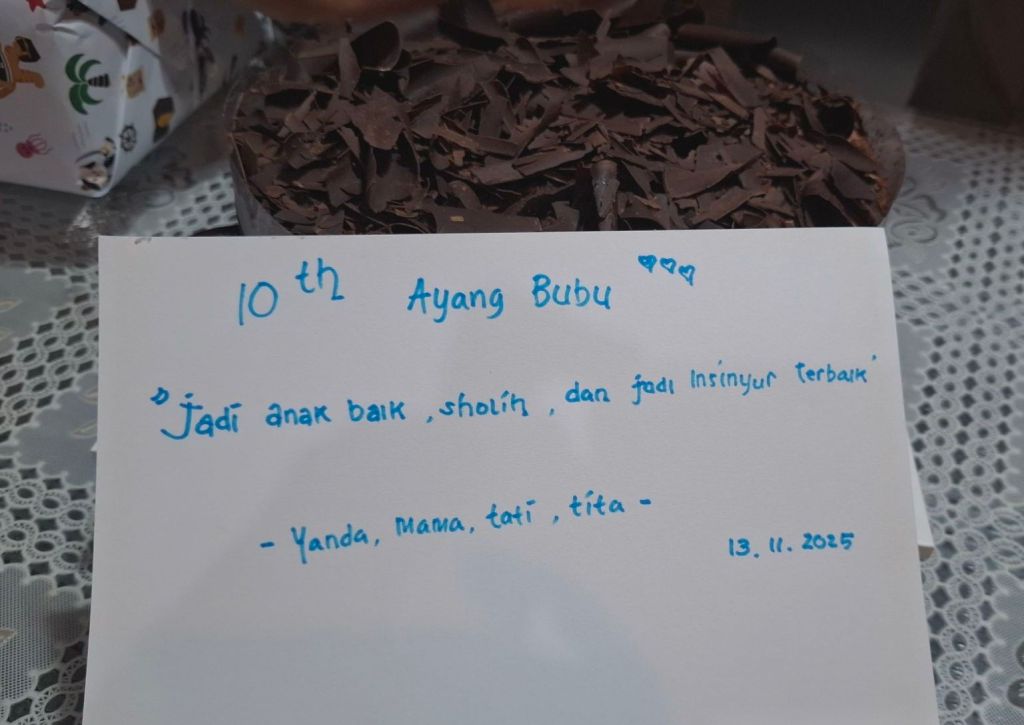 10th Ayang Bubu
"Jadi anak baik, sholih, dan jadi Insinyur terbaik"
- Yanda, Mama, tati, tita -
13.11.2025